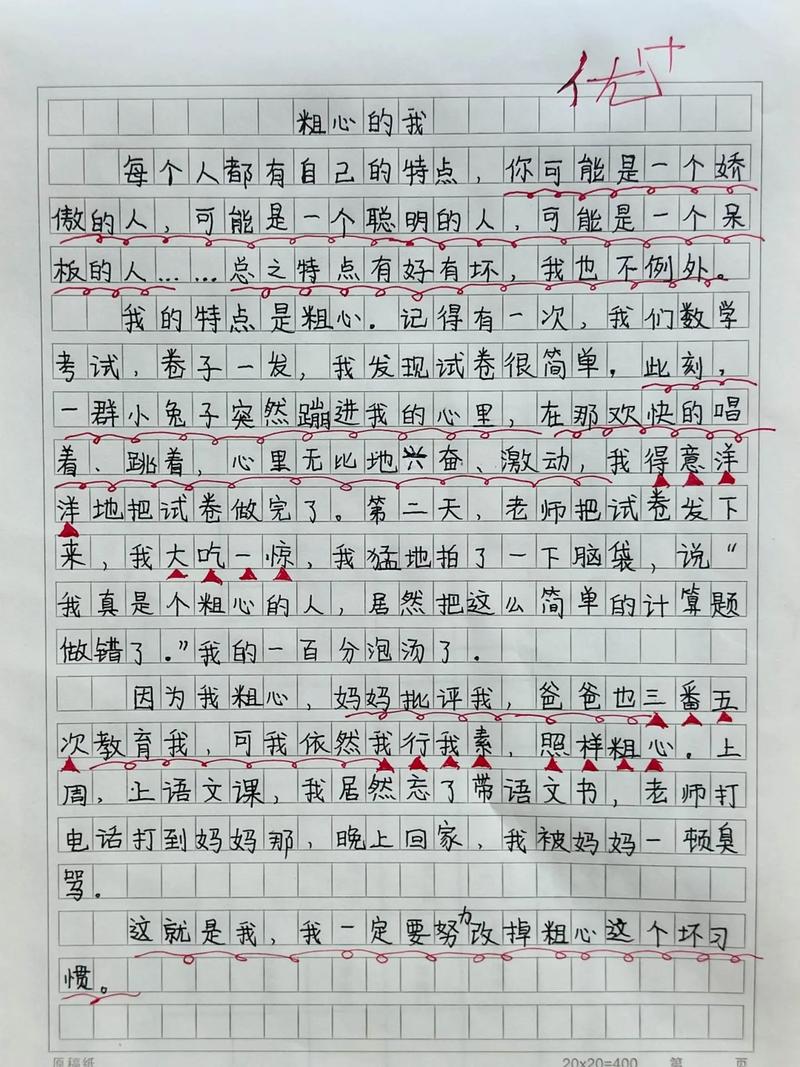 优+
粗心的我
每个人都有自己的特点，你可能是一个娇
傲的人，可能是一个聪明的人，可能是一个呆
板的人……总之特点有好有坏，我也不例外。
我的特点是粗心．记得有一次，我们数学
考试，卷子一发，我发现试卷很简单．此刻，
一群小兔子突然蹦进我的心里，在那欢快的唱
着、跳着，心里无比地兴奋、激动，我得意洋
洋地把试卷做完了。第二天，老师把试卷发下
来，我大吃一惊，我猛地拍了一下脑袋，说“
我真是个粗心的人，居然把这么简单的计算题
做错了．”我的一百分泡汤了．
因为我粗心，妈妈批评我，爸爸也三番五
次教育我，可我依然我行我素，照样粗心．上
周，上语文课，我居然忘了带语文书，老师打
电话打到妈妈那，晚上回家，我被妈妈一顿臭
骂．
这就是我，我一定要努力改掉粗心这个坏习
惯。
原稿纸 20x20=400 第 页